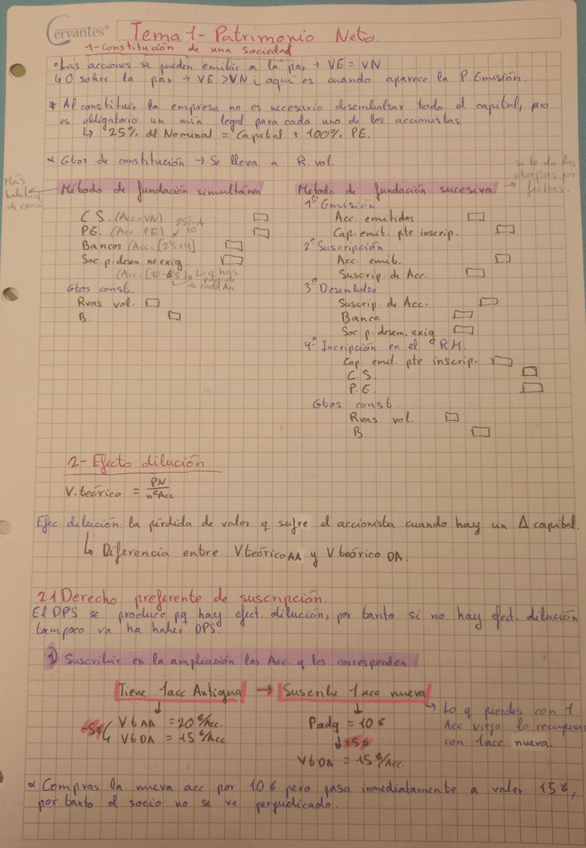 Cervantes
Tema 1- Patrimonio Neto
1-Constitución de una Sociedad
• Las acciones se pueden emitir a la par → VE = VN
↳ O sobre la par → VE > VN ¡ aquí es cuando aparece la P. Emisión.
* Al constituir la empresa no es necesario desembolsar todo el capital, pero
es obligatorio un mín legal para cada uno de los accionistas
↳ 25% del Nominal = Capital + 100% PE.
* Gtos de constitución → Se lleva a R. vol.
Más
Método de fundación simultánea
C S. (Acc·VN)
P.E. (Acc. PE)
Bancos (Acc.
Soc p. desem. no exig
Gtos const.
Rvas vol.
B.
Método de fundación sucesiva. → se te da las etapas por fechas.
1º Emisión
Acc. emitidas
Cap. emit. pte inscrip.
2º Suscripción
Acc emit.
Suscrip. de Acc.
3º Desembolso
Suscrip. de Acc.
Banco
Soc p. desem. exig
4º Incripción en el R.M.
Cap emit. pte inscrip.
C. S.
P. E.
Gtos const.
Rvas vol.
B
2- Efecto dilución
V. teórico = PN / nºAcc
Efec dilución la pérdida de valor q sufre el accionista cuando hay un Δ capital.
↳ Diferencia entre V teórico AA y V teórico DA.
2.1 Derecho preferente de suscripción.
El DPS se produce pq hay efect. dilución, por tanto si no hay efed. dilución
tampoco va ha haber DPS.
1) Suscribir en la ampliación las Acc q les corresponden
Tiene 1acc Antigua → Suscribe 1 acc nueva
Vt AA = 20€/Acc
-5€ Vt DA = 15€/Acc
Padq = 10€
+5€
Vt DA = 15€/Acc.
↳ Lo q pierdes con 1
Acc vieja lo recuperas
con 1acc nueva.
* Compras la nueva acc por 10€ pero pasa inmediatamente a valer 15€,
por tanto el socio no se ve perjudicado.